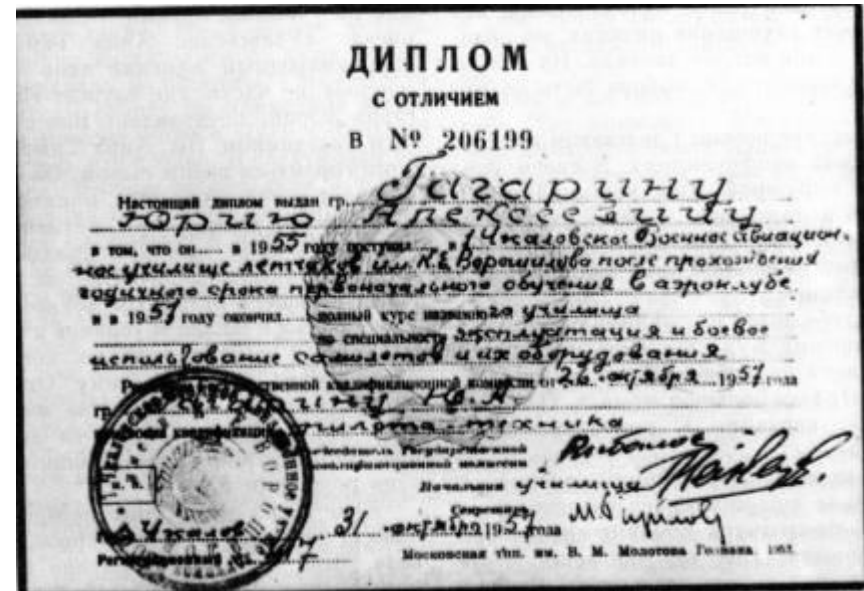 ДИПЛОМ
С ОТЛИЧИЕМ
В № 206199
Настоящий диплом выдан гр. Гагарину
Юрию Алексеевичу
в том, что он в 1955 году поступил в 1 Чкаловское Военное Авиацион-
ное училище летчиков им. К.Е. Ворошилова после прохождения
годичного срока первоначального обучения в аэроклубе
и в 1957 году окончил полный курс названного училища
по специальности эксплуатация и боевое
использование самолетов и их оборудования
Государственной квалификационной комиссии от 26 октября 1957 года
гр. Ю.А.
квалификация пилота-техника
Председатель Государственной
квалификационной комиссии
Начальник училища
Секретарь
Чкалов 31 октября 1957 года
Регистрационный №
Московская тип. им. В. М. Молотова Гознака.